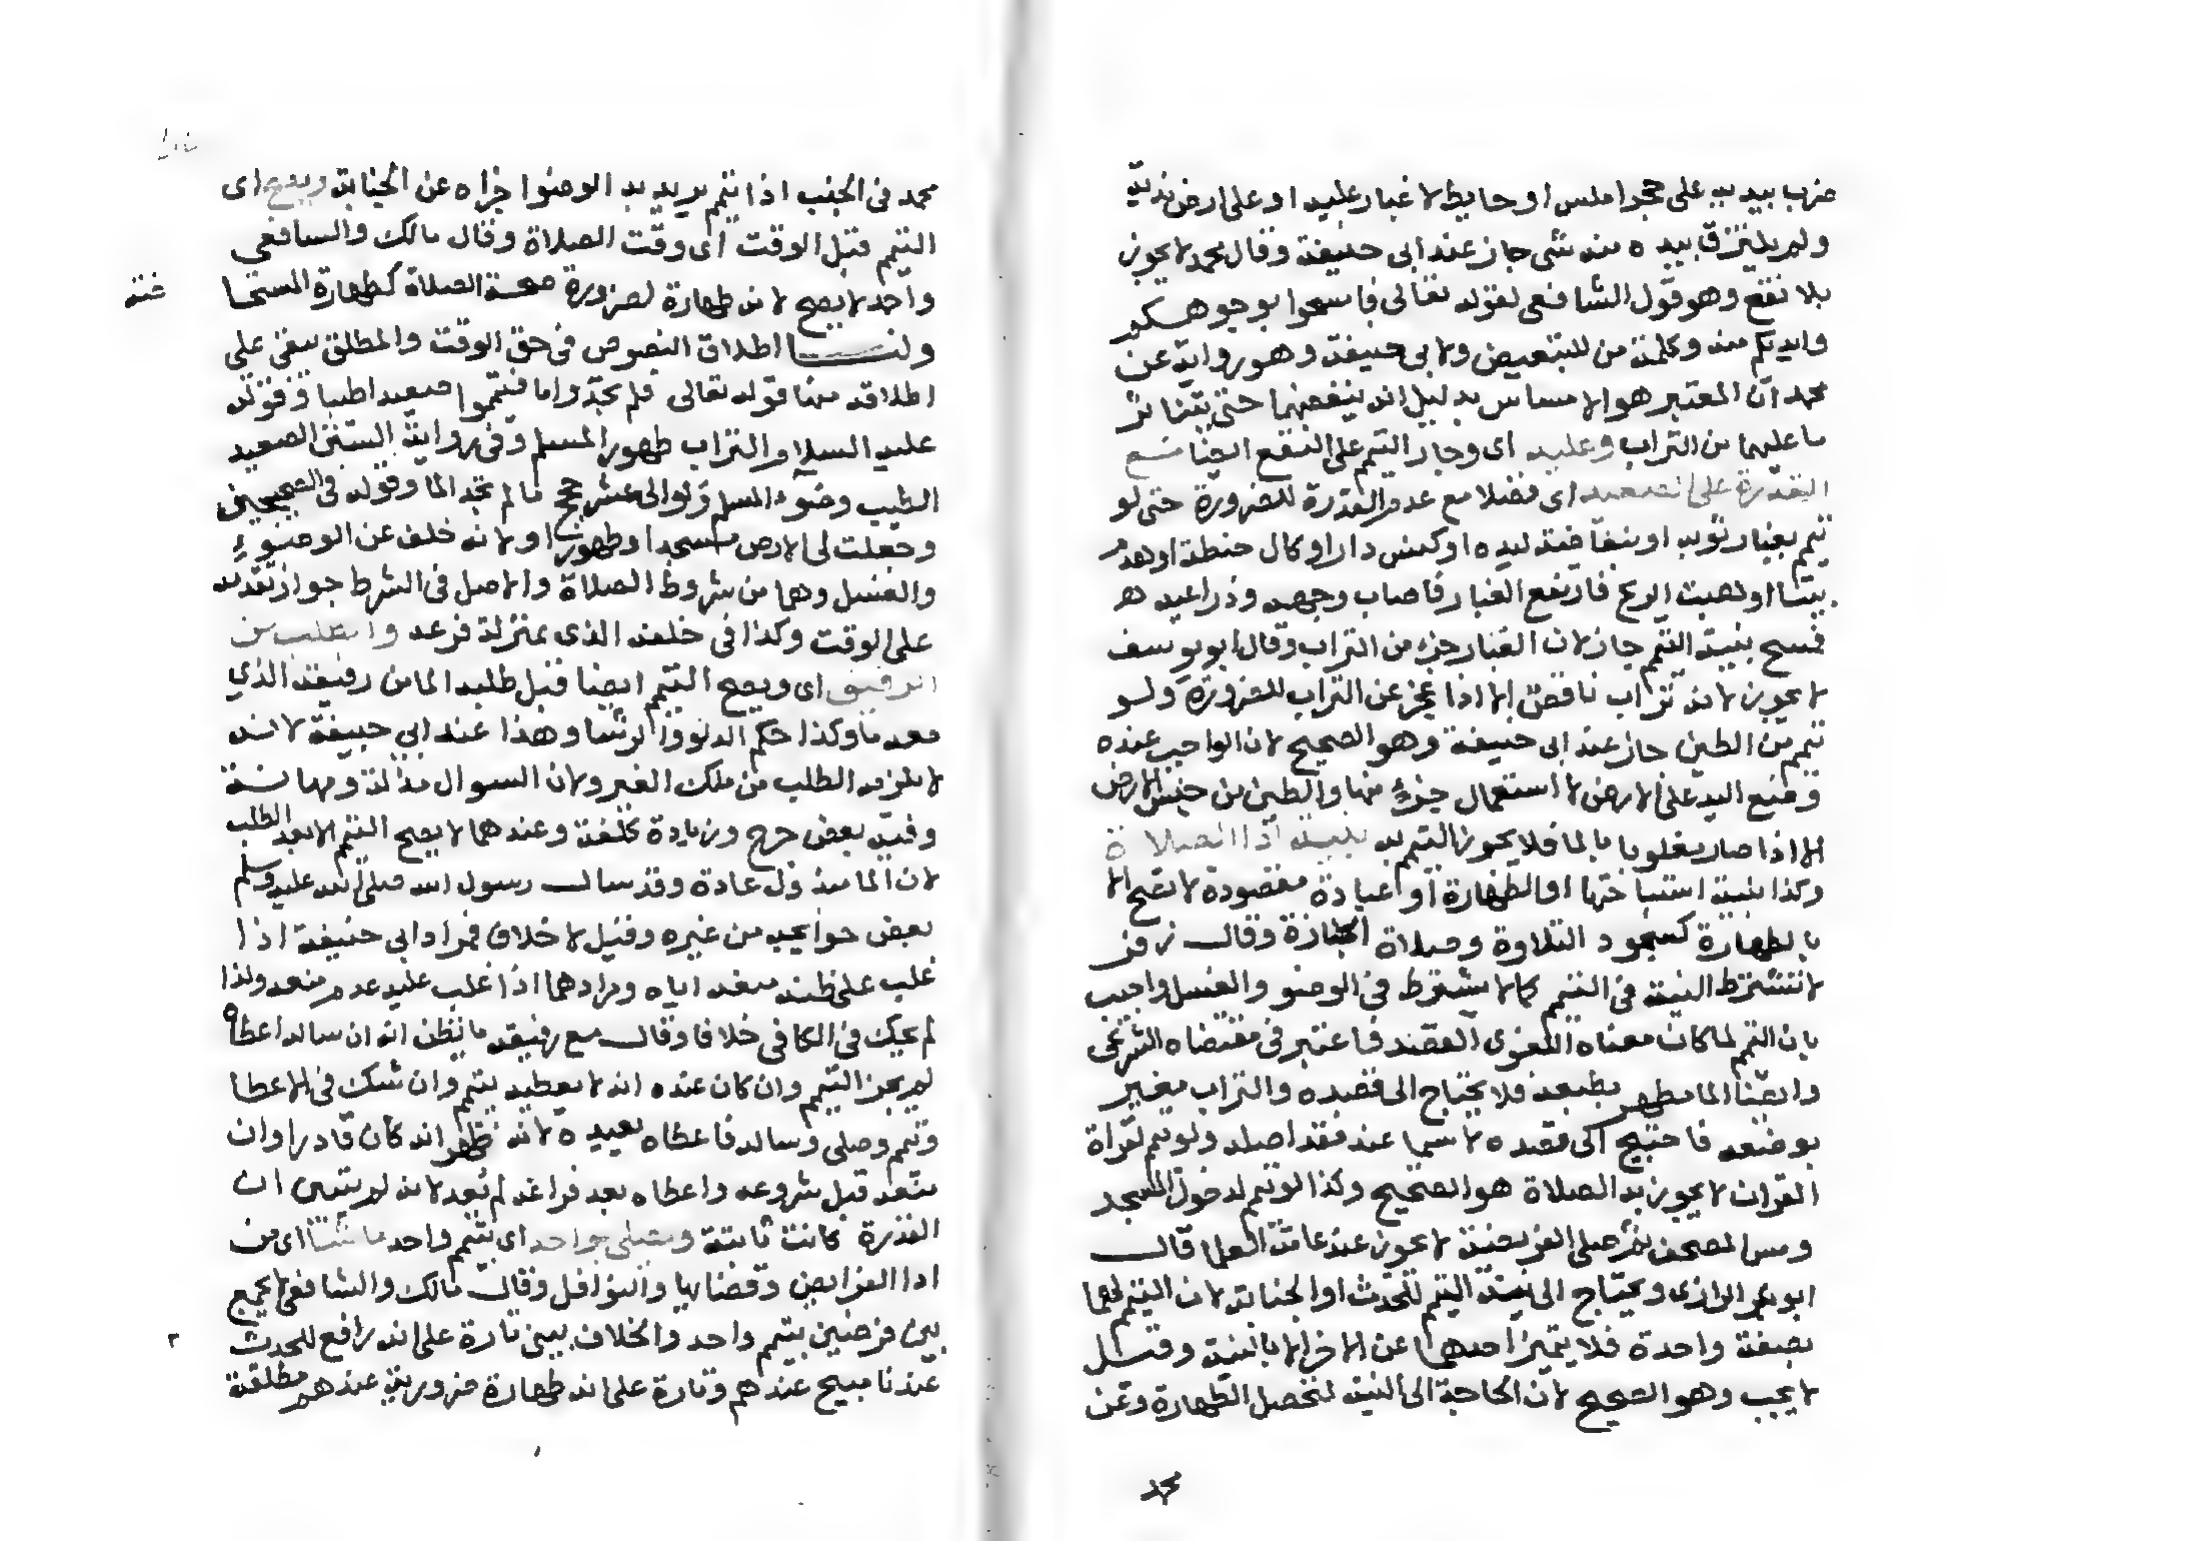 ضرب بيديه على حجر املس او حايط لا غبار عليه او على ارض ندية
ولم يلتزق بيده منه شى جاز عند ابى حنيفة وقال محمد لا يجوز
بلا نقع وهو قول الشافعى لقوله تعالى فامسحوا بوجوهكم
وايديكم منه وكلمة من للتبعيض ولابى حنيفة وهو رواية عن
محمد ان المعتبر هو الامساس بدليل انه ينفضهما حتى يتناثر
ما عليهما من التراب وعليه اى وجاز التيمم على النقع ايضا مع
القدرة على الصعيد اى فضلا مع عدم القدرة للضرورة حتى لو
تيمم بغبار ثوبه او نفاضة لبده او كنس دارا او كال حنطة او هدم
بيتا او لهبت الريح فارتفع الغبار فاصاب وجهه وذراعيه
فمسح بنية التيمم جاز لان الغبار جزء من التراب وقال ابو يوسف
لا يجوز لانه تراب ناقص الا اذا عجز عن التراب للضرورة ولو
تيمم من الطين جاز عند ابى حنيفة وهو الصحيح لان الواجب عنده
وضع اليد على الارض لا استعمال جزء منها والطين من جنس الارض
الا اذا صار مغلوبا بالما فلا يجوز التيمم به بنية اذا الصلاة
وكذا بنية استباحتها او الطهارة او عبادة مقصودة لا تصح الا
بالطهارة كسجود التلاوة وصلاة الجنازة وقال زفر
لا تشترط النية فى التيمم كما لا يشترط فى الوضو والغسل واجيب
بان التيمم لما كان معناه اللغوى القصد فاعتبر فى مقتضاه الشرعى
وايضا الما مطهر بطبعه فلا يحتاج الى قصده والتراب مغير
بوضعه فاحتيج الى قصده لا سيما عند فقد اصله ولو تيمم لقراة
القران لا يجوز به الصلاة هو الصحيح وكذا لو تيمم لدخول المسجد
ومس المصحف ثم صلى الفريضة لا يجوز عند عامة العلما قال
ابو بكر الرازى ويحتاج الى نية التيمم للحدث او الجنابة لان التيمم لهما
بصفة واحدة فلا يتميز احدهما عن الاخر الا بالنية وقيل
لا يجب وهو الصحيح لان الحاجة الى النية لتحصل الطهارة وعن
محمد
محمد فى الجنب اذا تيمم يريد به الوضوا جزاه عن الجنابة ويصح اى
التيمم قبل الوقت اى وقت الصلاة وقال مالك والشافعى
واحد لا يصح لانه طهارة لضرورة صحة الصلاة كطهارة المستحا
ضة
ولنا اطلاق النصوص فى حق الوقت والمطلق يبقى على
اطلاقه منها قوله تعالى فلم تجدوا ما فتيمموا صعيدا طيبا وقوله
عليه السلام التراب طهور المسلم وفى رواية السنن الصعيد
الطيب وضوء المسلم ولو الى عشر حجج ما لم يجد الما وقوله فى الصحيحين
وجعلت لى الارض مسجدا وطهورا ولانه خلف عن الوضوء
والغسل وهما من شروط الصلاة والاصل فى الشرط جواز تقديمه
على الوقت وكذا فى خلفه الذى بمنزلة فرعه والطلب من
الرفيق اى ويصح التيمم ايضا قبل طلبه الما من رفيقه الذي
معه ما وكذا حكم الدلو والرشا وهذا عند ابى حنيفة لانه
لا يلزمه الطلب من ملك الغير ولان السوال مذلة ومهانة
وفيه بعض حرج وزيادة كلفة وعندهما لا يصح التيمم الا بعد الطلب
لان الما مبذول عادة وقد سال رسول الله صلى الله عليه وسلم
بعض حوايجه من غيره وقيل لا خلاف فمراد ابى حنيفة اذا
غلب على ظنه منعه اياه ومرادهما اذا غلب عليه عدم منعه ولذا
لم يحك فى الكافى خلافا وقال مع رفيقه ما يظن انه ان ساله اعطاه
لم يجز التيمم وان كان عنده انه لا يعطيه يتيمم وان شك فى الاعطا
وتيمم وصلى وساله فاعطاه يعيده لانه ظهر انه كان قادرا وان
منعه قبل شروعه واعطاه بعد فراغه لم يعد لانه لم يتبين ان
القدرة كانت ثابتة ويصلى بواحد اى بتيمم واحد ما شا اى من
ادا الفرايض وقضايها والنوافل وقال مالك والشافعى لا يجمع
بين فرضين بتيمم واحد والخلاف يبنى تارة على انه رافع للحدث
٣
عندنا مبيح عندهم وتارة على انه طهارة ضرورية عندهم مطلقة